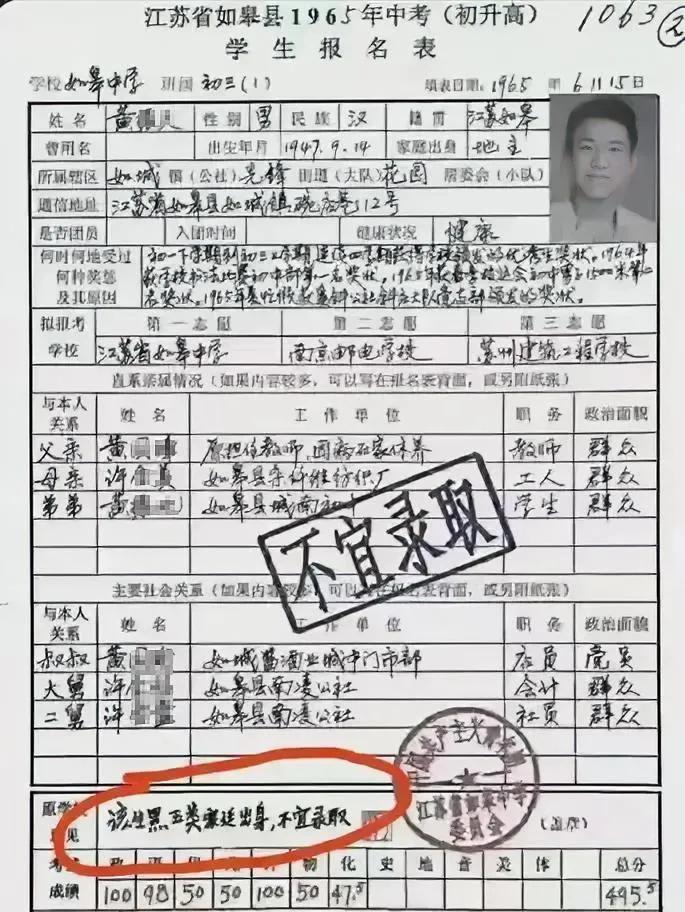 江苏省如皋县1965年中考(初升高)
1063 ②
学生报名表
学校 如皋中学 班级 初三(1) 填表日期: 1965年6月15日
姓名 黄 性别 男 民族 汉 籍贯 江苏如皋
曾用名 出生年月 1947.9.14 家庭出身 地主
所属辖区 如城 镇(公社) 先锋 街道(大队) 花园 居委会(小队)
通信地址 江苏省如皋县如城镇碗店巷112号
是否团员 入团时间 健康状况 健康
何时何地受过 初一下学期到初三上学期连续四学期获得学校颁发的优秀生奖状。1964年
何种奖惩 获学校书法比赛初中部第一名奖状。1965年获春季校运会初中男子1500米第
及其原因 名奖状。1965年夏忙假获 公社 大队党支部颁发的奖状。
拟报考 第一志愿 第二志愿 第三志愿
学校 江苏省如皋中学 南京邮电学校 苏州建筑工程学校
直系亲属情况(如果内容较多,可以写在报名表背面,或另附纸张)
与本人关系 姓名 工作单位 职务 政治面貌
父亲 黄 原担任教师,因病在家休养 教师 群众
母亲 许 如皋县 纤维纺织厂 工人 群众
弟弟 黄 如皋县城南初中 学生 群众
不宜录取
主要社会关系(如果内容较多,可以写在报名表背面,或另附纸张)
与本人关系 姓名 工作单位 职务 政治面貌
叔叔 黄 如城酱酒业城中门市部 店员 党员
大舅 许 如皋县南凌公社 会计 群众
二舅 许 如皋县南凌公社 社员 群众
中国共产主义青年团
江苏省如皋中学
委员会
原学校意见 该生黑五类家庭出身,不宜录取 (盖章)
物 化 史 地 音 美 体 总分
成绩 100 98 50 50 100 50 47.5 495.5